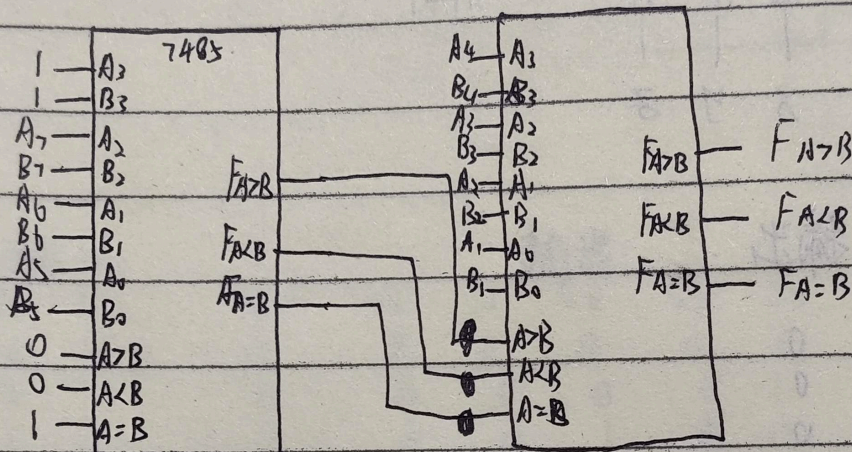 7485
1 A3
1 B3
A7 A2
B7 B2
A6 A1
B6 B1
A5 A0
B5 B0
0 A>B
0 A<B
1 A=B
FA>B
FA<B
FA=B
A4 A3
B4 B3
A3 A2
B3 B2
A2 A1
B2 B1
A1 A0
B1 B0
A>B
A<B
A=B
FA>B FA>B
FA<B FA<B
FA=B FA=B